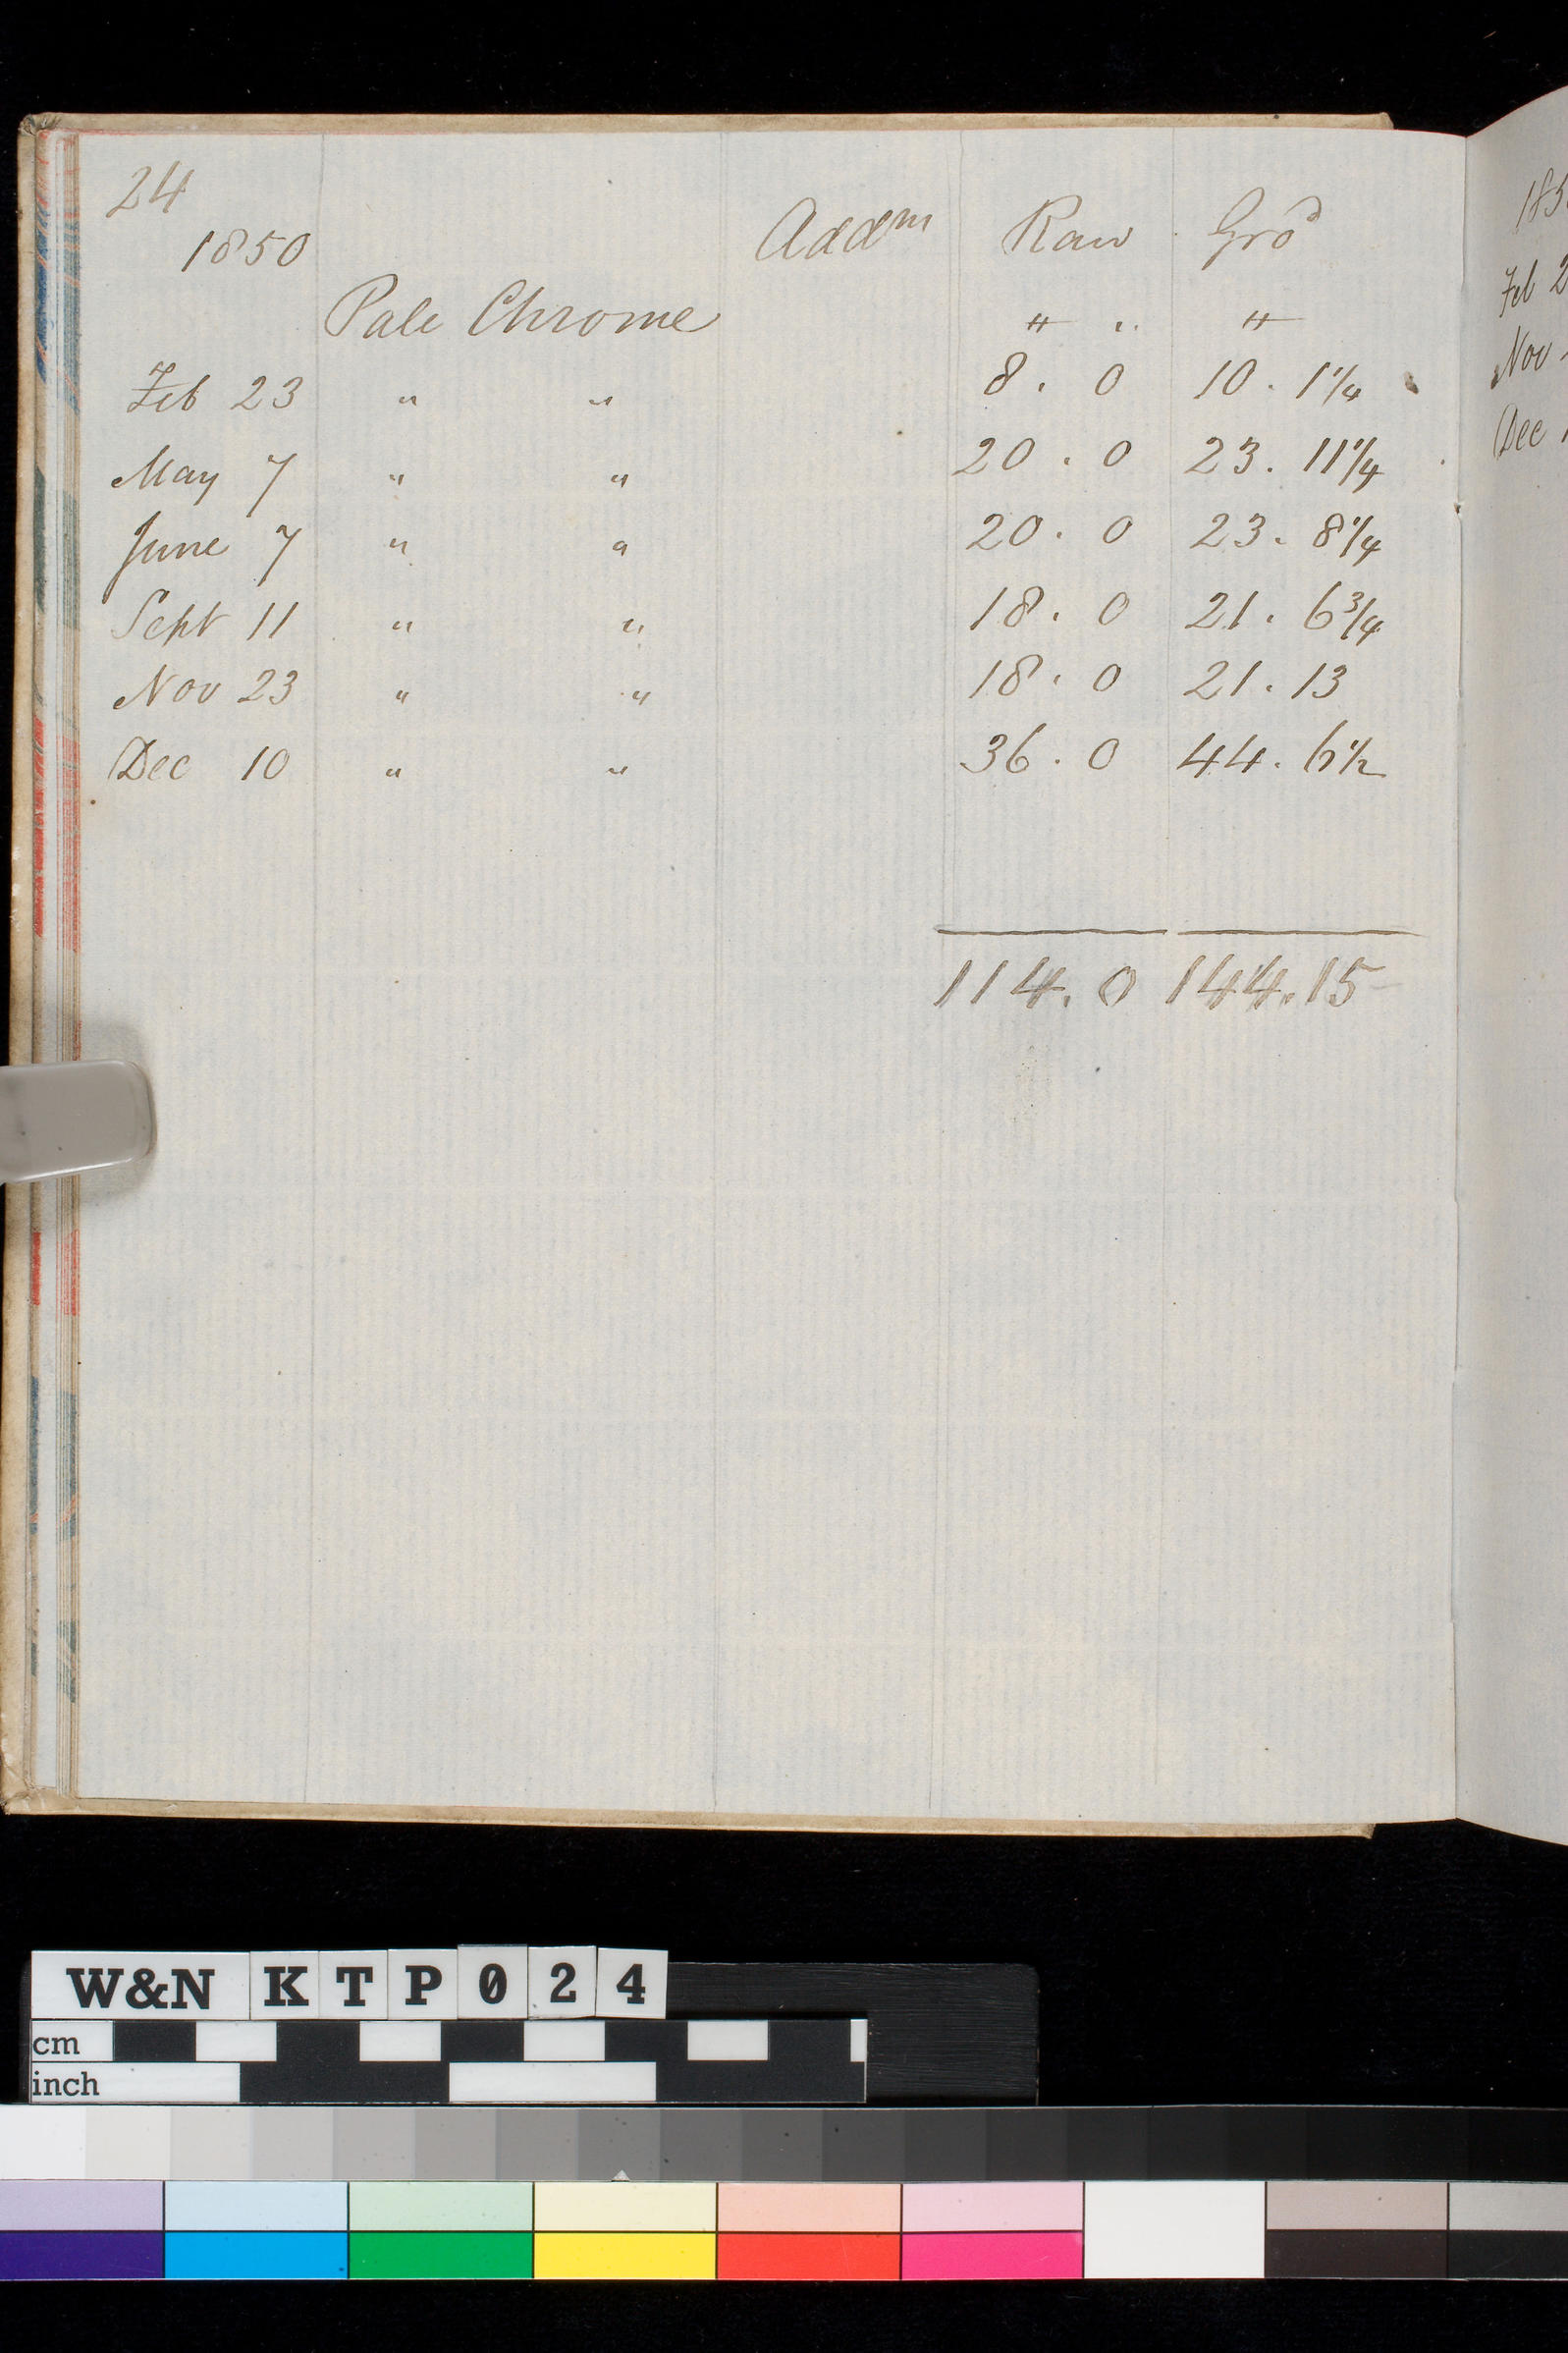 24
1850 Addm Raw Grd
Pale Chrome # " #
Feb 23 " " 8 . 0 10 . 1 1/4
May 7 " " 20 . 0 23 . 11 1/4
June 7 " " 20 . 0 23 . 8 1/4
Sept 11 " " 18 . 0 21 . 6 3/4
Nov 23 " " 18 . 0 21 . 13
Dec 10 " " 36 . 0 44 . 6 1/2
114 . 0 144 . 15
185
Feb 2
Nov
Dec
W&N KTP024
cm
inch